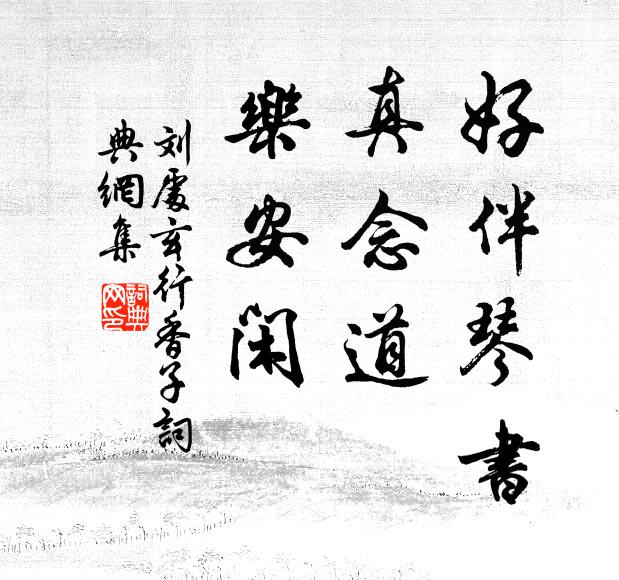 好伴琴書
真念道
樂安閑
刘處玄行香子詞
典網集
詞典网印